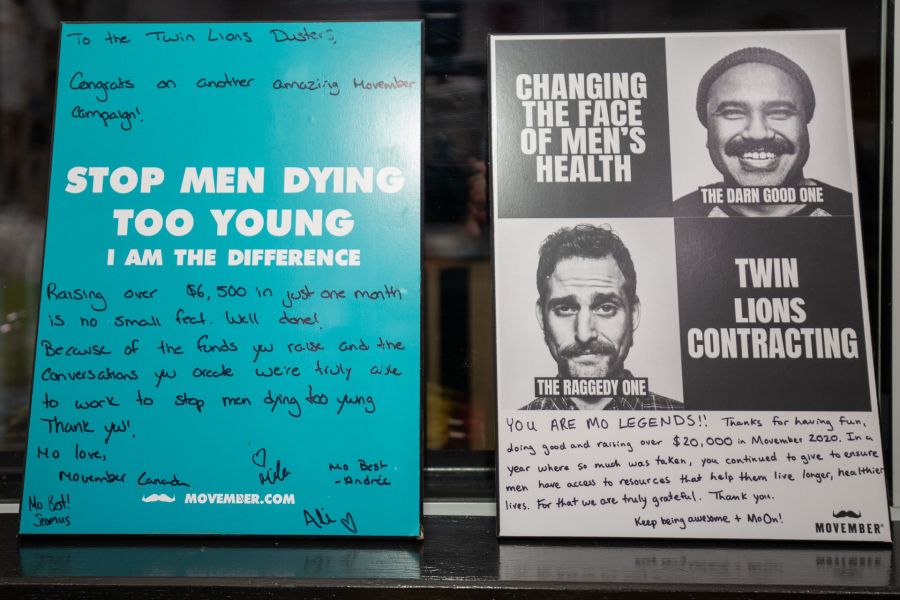 To the Twin Lions Dusters,
Congrats on another amazing Movember
Campaign!
STOP MEN DYING
TOO YOUNG
I AM THE DIFFERENCE
Raising over $6,500 in just one month
is no small feat. Well done!
Because of the funds you raise and the
conversations you create we're truly able
to work to stop men dying too yung
Thank you!
Mo love,
Movember Canada
Mo Best
-Andrée
Mo Best!
Seamus
MOVEMBER.COM
Ali
CHANGING
THE FACE
OF MEN'S
HEALTH
THE DARN GOOD ONE
THE RAGGEDY ONE
TWIN
LIONS
CONTRACTING
YOU ARE MO LEGENDS!! Thanks for having fun,
doing good and raising over $20,000 in Movember 2020. In a
year where so much was taken, you continued to give to ensure
men have access to resources that help them live longer, healthier
lives. For that we are truly grateful. Thank you.
Keep being awesome + Mo On!
MOVEMBER®